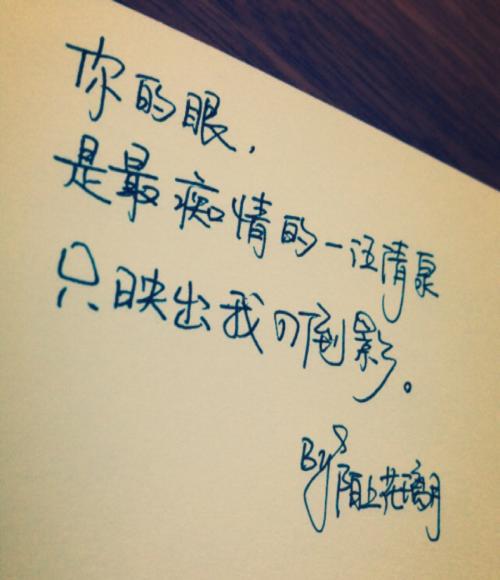 你的眼，
是最痴情的一汪清泉
只映出我的倒影。
By 陌上花璃月